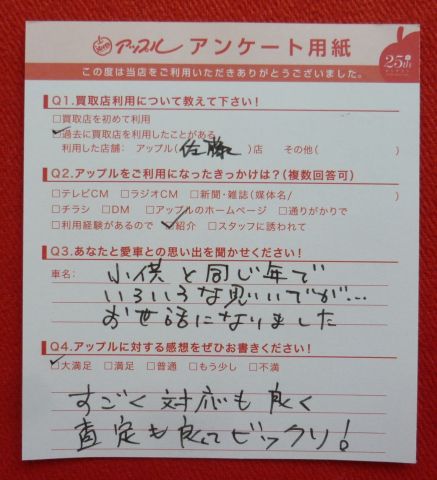 アップル アンケート用紙
25th
この度は当店をご利用いただきありがとうございました。
Q1.買取店利用について教えて下さい！
□買取店を初めて利用
□過去に買取店を利用したことがある
利用した店舗： アップル(佐藤)店 その他( )
Q2.アップルをご利用になったきっかけは？(複数回答可)
□テレビCM □ラジオCM □新聞・雑誌(媒体名/ )
□チラシ □DM □アップルのホームページ □通りがかりで
□利用経験があるので □紹介 □スタッフに誘われて
Q3.あなたと愛車との思い出を聞かせください！
車名： 小供と同じ年で
いろいろな思いでが…
お世話になりました
Q4.アップルに対する感想をぜひお書きください！
□大満足 □満足 □普通 □もう少し □不満
すごく対応も良く
査定も良くてビックリ！